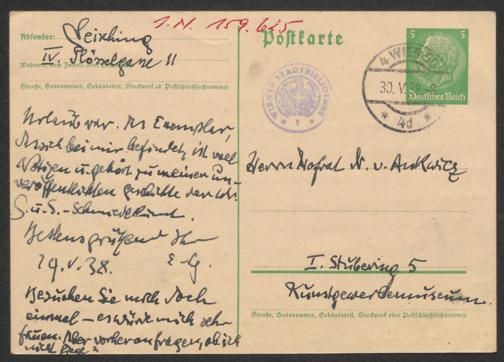 I.N. 159.625
Absender: Leisching
IV, Plösselgasse 11
Straße, Hausnummer, Gebäudeteil, Stockwerk od. Postschließfachnummer
Postkarte
5 5
Deutsches Reich
4 WIEN
30. V. 38
* 4d *
WIENER STADTBIBLIOTHEK
* 1 *
Urlaub war. Ihr Exemplar,
bei mir befindet, ist voll
Notizen und gehört zu meinen un-
veröffentlichten Geschichte der
G. u. S.-Schmiedekunst.
Bestens grüßend Ihr
29. V. 38.
Besuchen Sie mich doch
einmal – es würde mich sehr
freuen. Aber vorher anfragen, ob ich
Herrn Hofrat Dr. v. Ankwicz
I. Stubenring 5
Kunstgewerbemuseum.
Straße, Hausnummer, Gebäudeteil, Stockwerk oder Postschließfachnummer